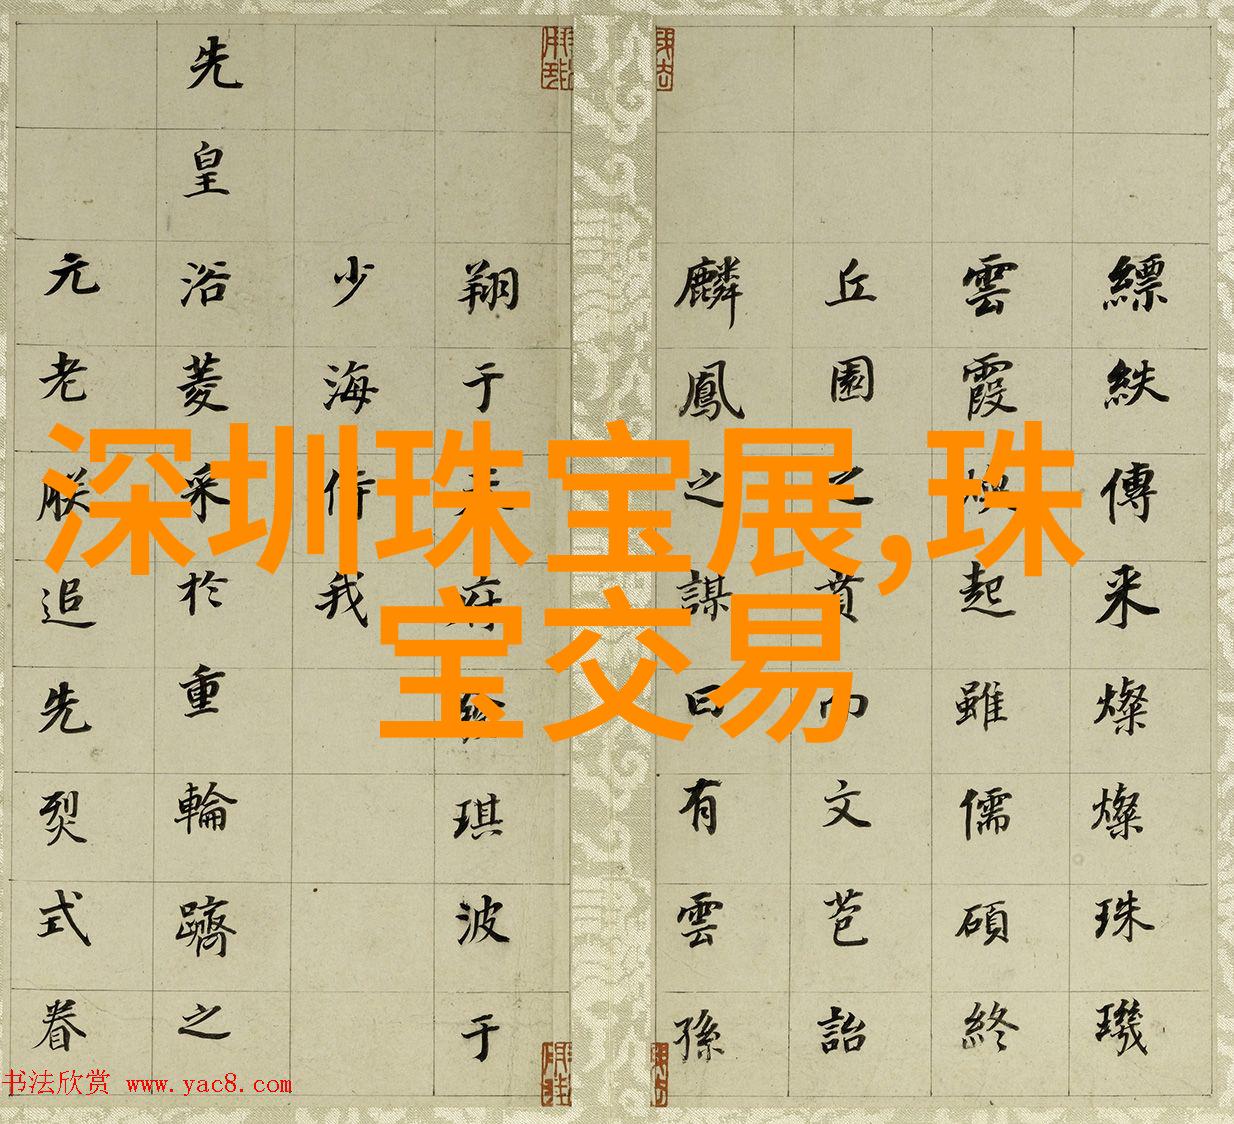 深圳珠宝展,珠
宝交易
縹紩傳来燦燦珠璣
雲霞 起雖儒碩終
丘園之賁而文苞詒
麟鳳之謀曰有雲孫
翔于天府 琪波于
少海侍我
先皇浴菱采於重輪躋之
元老朕追先烈式眷
书法欣赏 www.yac8.com